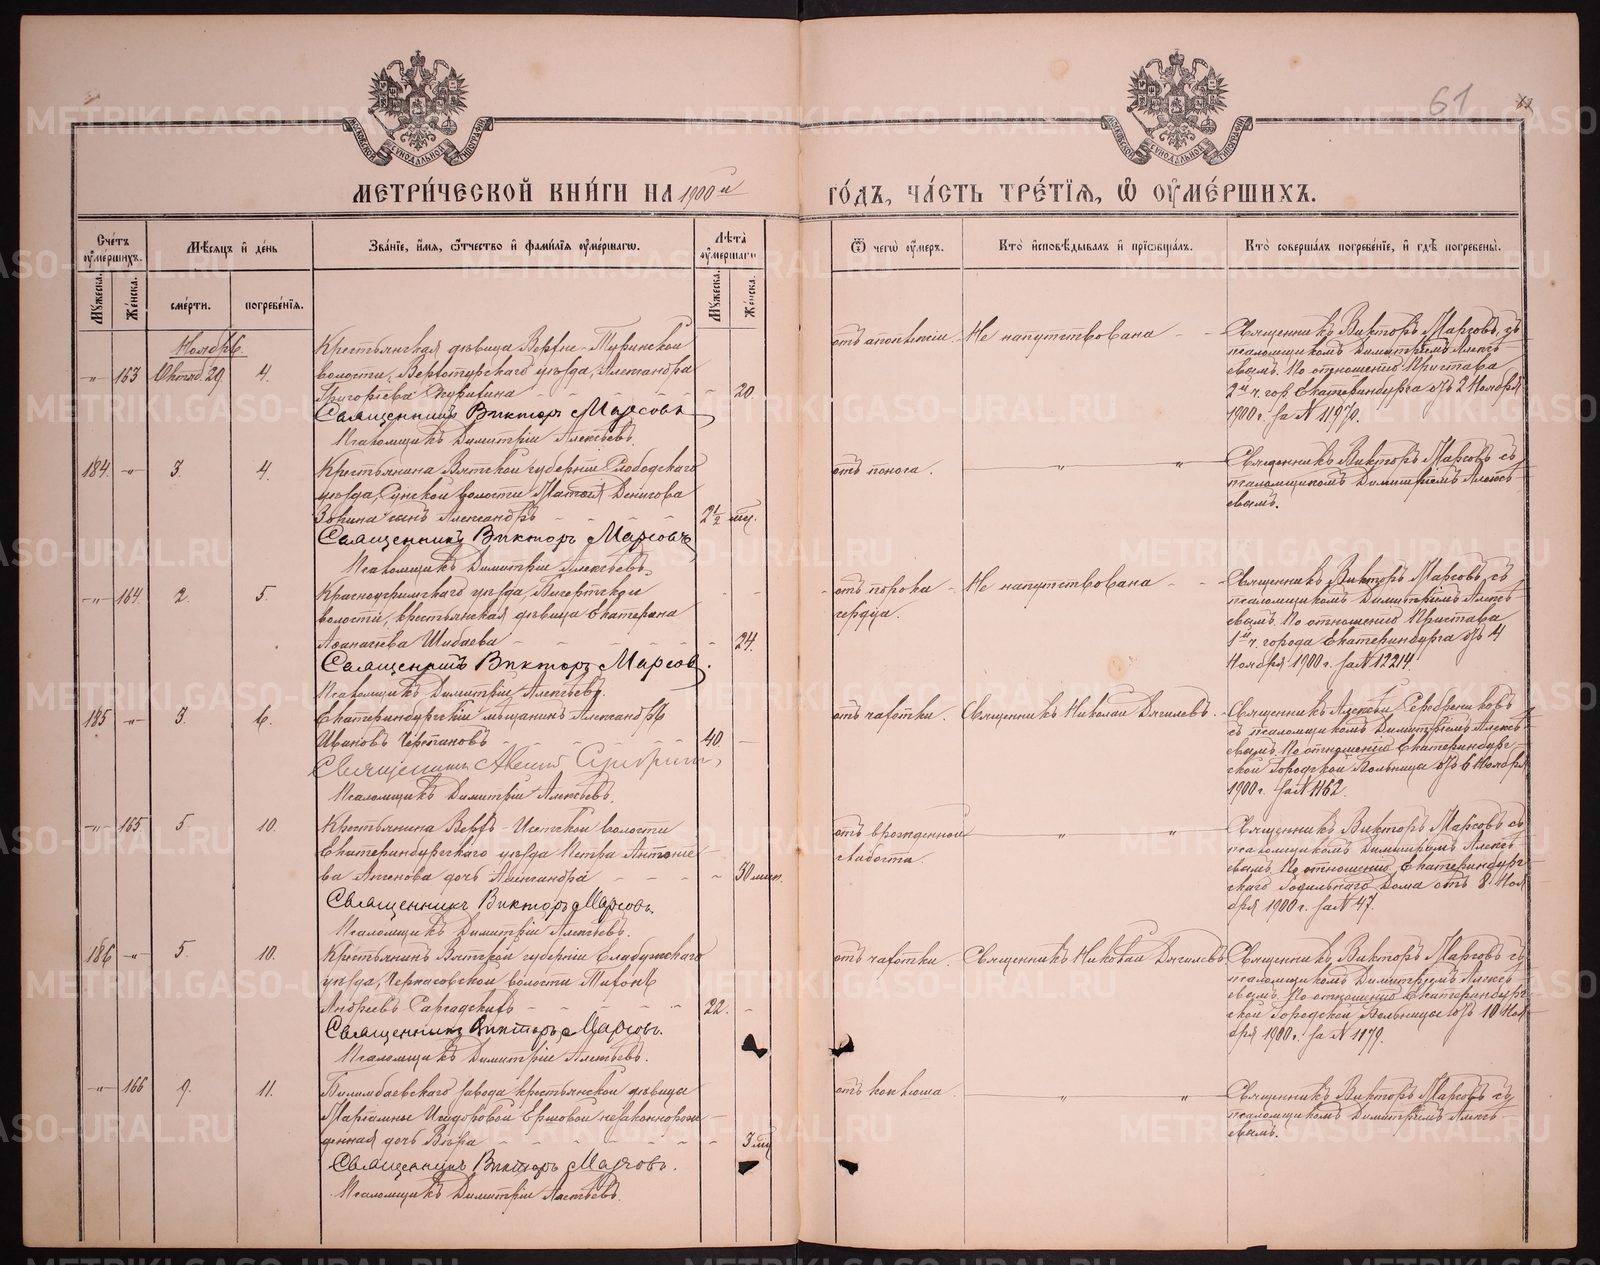 61
МЕТРИ́ЧЕСКОЙ КНИ́ГИ НА 1900 й ГО́ДЪ, ЧА́СТЬ ТРЕ́ТЇЯ, Ѿ ОУМЕ́РШИХЪ.
Сче́тъ оумершихъ.
Мѣсяцъ и де́нь
Зва́нїе, и́мя, ѻтчество и фами́лїя оуме́ршагѡ.
Лѣта оумершагѡ
Ѿ чегѡ оумеръ.
Кто исповѣдывалъ и прїобщалъ.
Кто совершалъ погребенїе, и гдѣ погребены.
Мужеска. Женска. смерти. погребенїя. Мужеска. Женска.
Ноябрь.
163 Октяб. 29 4.
Крестьянская дѣвица Верхне-Туринской
волости, Верхотурскаго уѣзда, Александра
Григорьева 20.
Священникъ Викторъ Марсовъ
Псаломщикъ Димитрій Алексѣевъ.
отъ апоплексіи. Не напутствована
Священникъ Викторъ Марсовъ, съ
псаломщикомъ Димитріемъ Алексѣ-
евымъ. По отношенію Пристава
2й ч. гор. Екатеринбурга отъ 2 Ноября
1900 г. за № 11970.
184. 3. 4.
Крестьянина Вятской губерніи Слободскаго
уѣзда, Сунской волости
Зорина сынъ Александръ 2½ мѣс.
Священникъ Викторъ Марсовъ
Псаломщикъ Димитрій Алексѣевъ.
отъ поноса.
Священникъ Викторъ Марсовъ съ
псаломщикомъ Димитріемъ Алексѣ-
евымъ.
164. 2. 5.
Красноуфимскаго уѣзда
волости, крестьянская дѣвица Екатерина
Шибаева 24.
Священникъ Викторъ Марсовъ.
Псаломщикъ Димитрій Алексѣевъ.
отъ порока Не напутствована
сердца.
Священникъ Викторъ Марсовъ съ
псаломщикомъ Димитріемъ Алексѣ-
евымъ. По отношенію Пристава
1й ч. города Екатеринбурга отъ 4
Ноября 1900 г. за № 12214.
185. 3. 6.
Екатеринбургскій мѣщанинъ Александръ
Ивановъ 40.
Священникъ
Псаломщикъ Димитрій Алексѣевъ.
отъ чахотки. Священникъ Николай Дягилевъ.
Священникъ Алексѣй Серебрениковъ
съ псаломщикомъ Димитріемъ Алексѣ-
евымъ. По отношенію Екатеринбург-
ской Городской Больницы отъ 6 Ноября
1900 г. за № 1162.
165 5 10.
Крестьянина Верхъ-Исетской волости
Екатеринбургскаго уѣзда Петра Антоніе-
ва дочь Александра 30 мин.
Священникъ Викторъ Марсовъ.
Псаломщикъ Димитрій Алексѣевъ.
отъ врожденной
слабости.
Священникъ Викторъ Марсовъ съ
псаломщикомъ Димитріемъ Алексѣ-
евымъ. По отношенію Екатеринбург-
скаго Родильнаго Дома отъ 8 Ноя-
бря 1900 г. за № 47.
186 5. 10.
Крестьянинъ Вятской губерніи Елабужскаго
уѣзда, Черкасовской волости
Андреевъ 22.
Священникъ Викторъ Марсовъ.
Псаломщикъ Димитрій Алексѣевъ.
отъ чахотки. Священникъ Николай Дягилевъ
Священникъ Викторъ Марсовъ съ
псаломщикомъ Димитріемъ Алексѣ-
евымъ. По отношенію Екатеринбург-
ской Городской Больницы отъ 10 Ноя-
бря 1900 г. за № 1179.
166 9. 11.
Билимбаевскаго завода крестьянской дѣвицы
Ершовой незаконнорож-
денная дочь Вѣра 3 мѣс.
Священникъ Викторъ Марсовъ.
Псаломщикъ Димитрій Алексѣевъ.
отъ коклюша.
Священникъ Викторъ Марсовъ съ
псаломщикомъ Димитріемъ Алексѣ-
евымъ.
METRIKI.GASO-URAL.RU